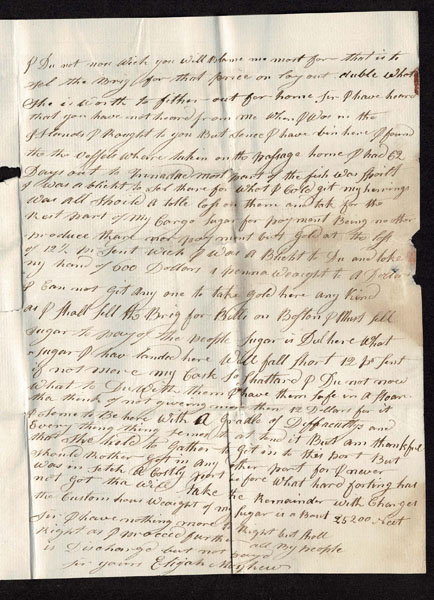 I Du not now Wich you Will Blame me most for - that is to
Sel the Brig for that price on lay out duble What
She is Worth to fither out for home sir I have heard
that you have not heard from me When I Was in the
I Raught to you But Sence I have bin here I found
the the Vessels Whare taken on the passage home I had 62
Days out to most part of the fish Was
I was ablight to Sel thare for What I Cold git my herrings
Was all Sho a tolle loss on them and tok for the
Rest part of My Cargo Sugar for payment Being no other
produce thare nor payment but Gold at the loss
of 12½ pr Sent Wich I Was A Blight to Du and take
my hand of 600 Dollars a Weaight to A Dollar
I Can not Git Any one to take Gold here Any Kind
as I Shall Sell the Brig for Bills on Boston I Must Sell
Sugar to pay of the people Sugar is Dul here What
Sugar I hav landed here Will fall Short 12 pr Sent
if not more my Cask So Shattard I Du not now
What to Du With them I have them Safe in A
tha think of not giving more then 12 Dollars for it
I Seme to Be here With A of Diffacultys and
Every thing But am thankful
that She hold to Gather to Git in to this port But
Should Rother Got in Any other port for
Was in Setch A Cortly port before What hard
not Got tha Will take
the Custom hous Weaight of my the Remainder With Charges
Sir I have nothing more to Sugar is a Bout 25200 Neet
Right as I proceed further Right but Shall
is Discharge but not payd all My people
Sir yours Elijah Mayhew